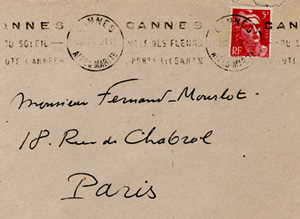 CANNES CANNES CANNES CANNES
DU SOLEIL VILLE DES FLEURS
ROUTE CANNES SPORTS ELEGANTS
ALPES MARMES
RF
Monsieur Fernand Mourlot.
18. Rue de Chabrol
Paris